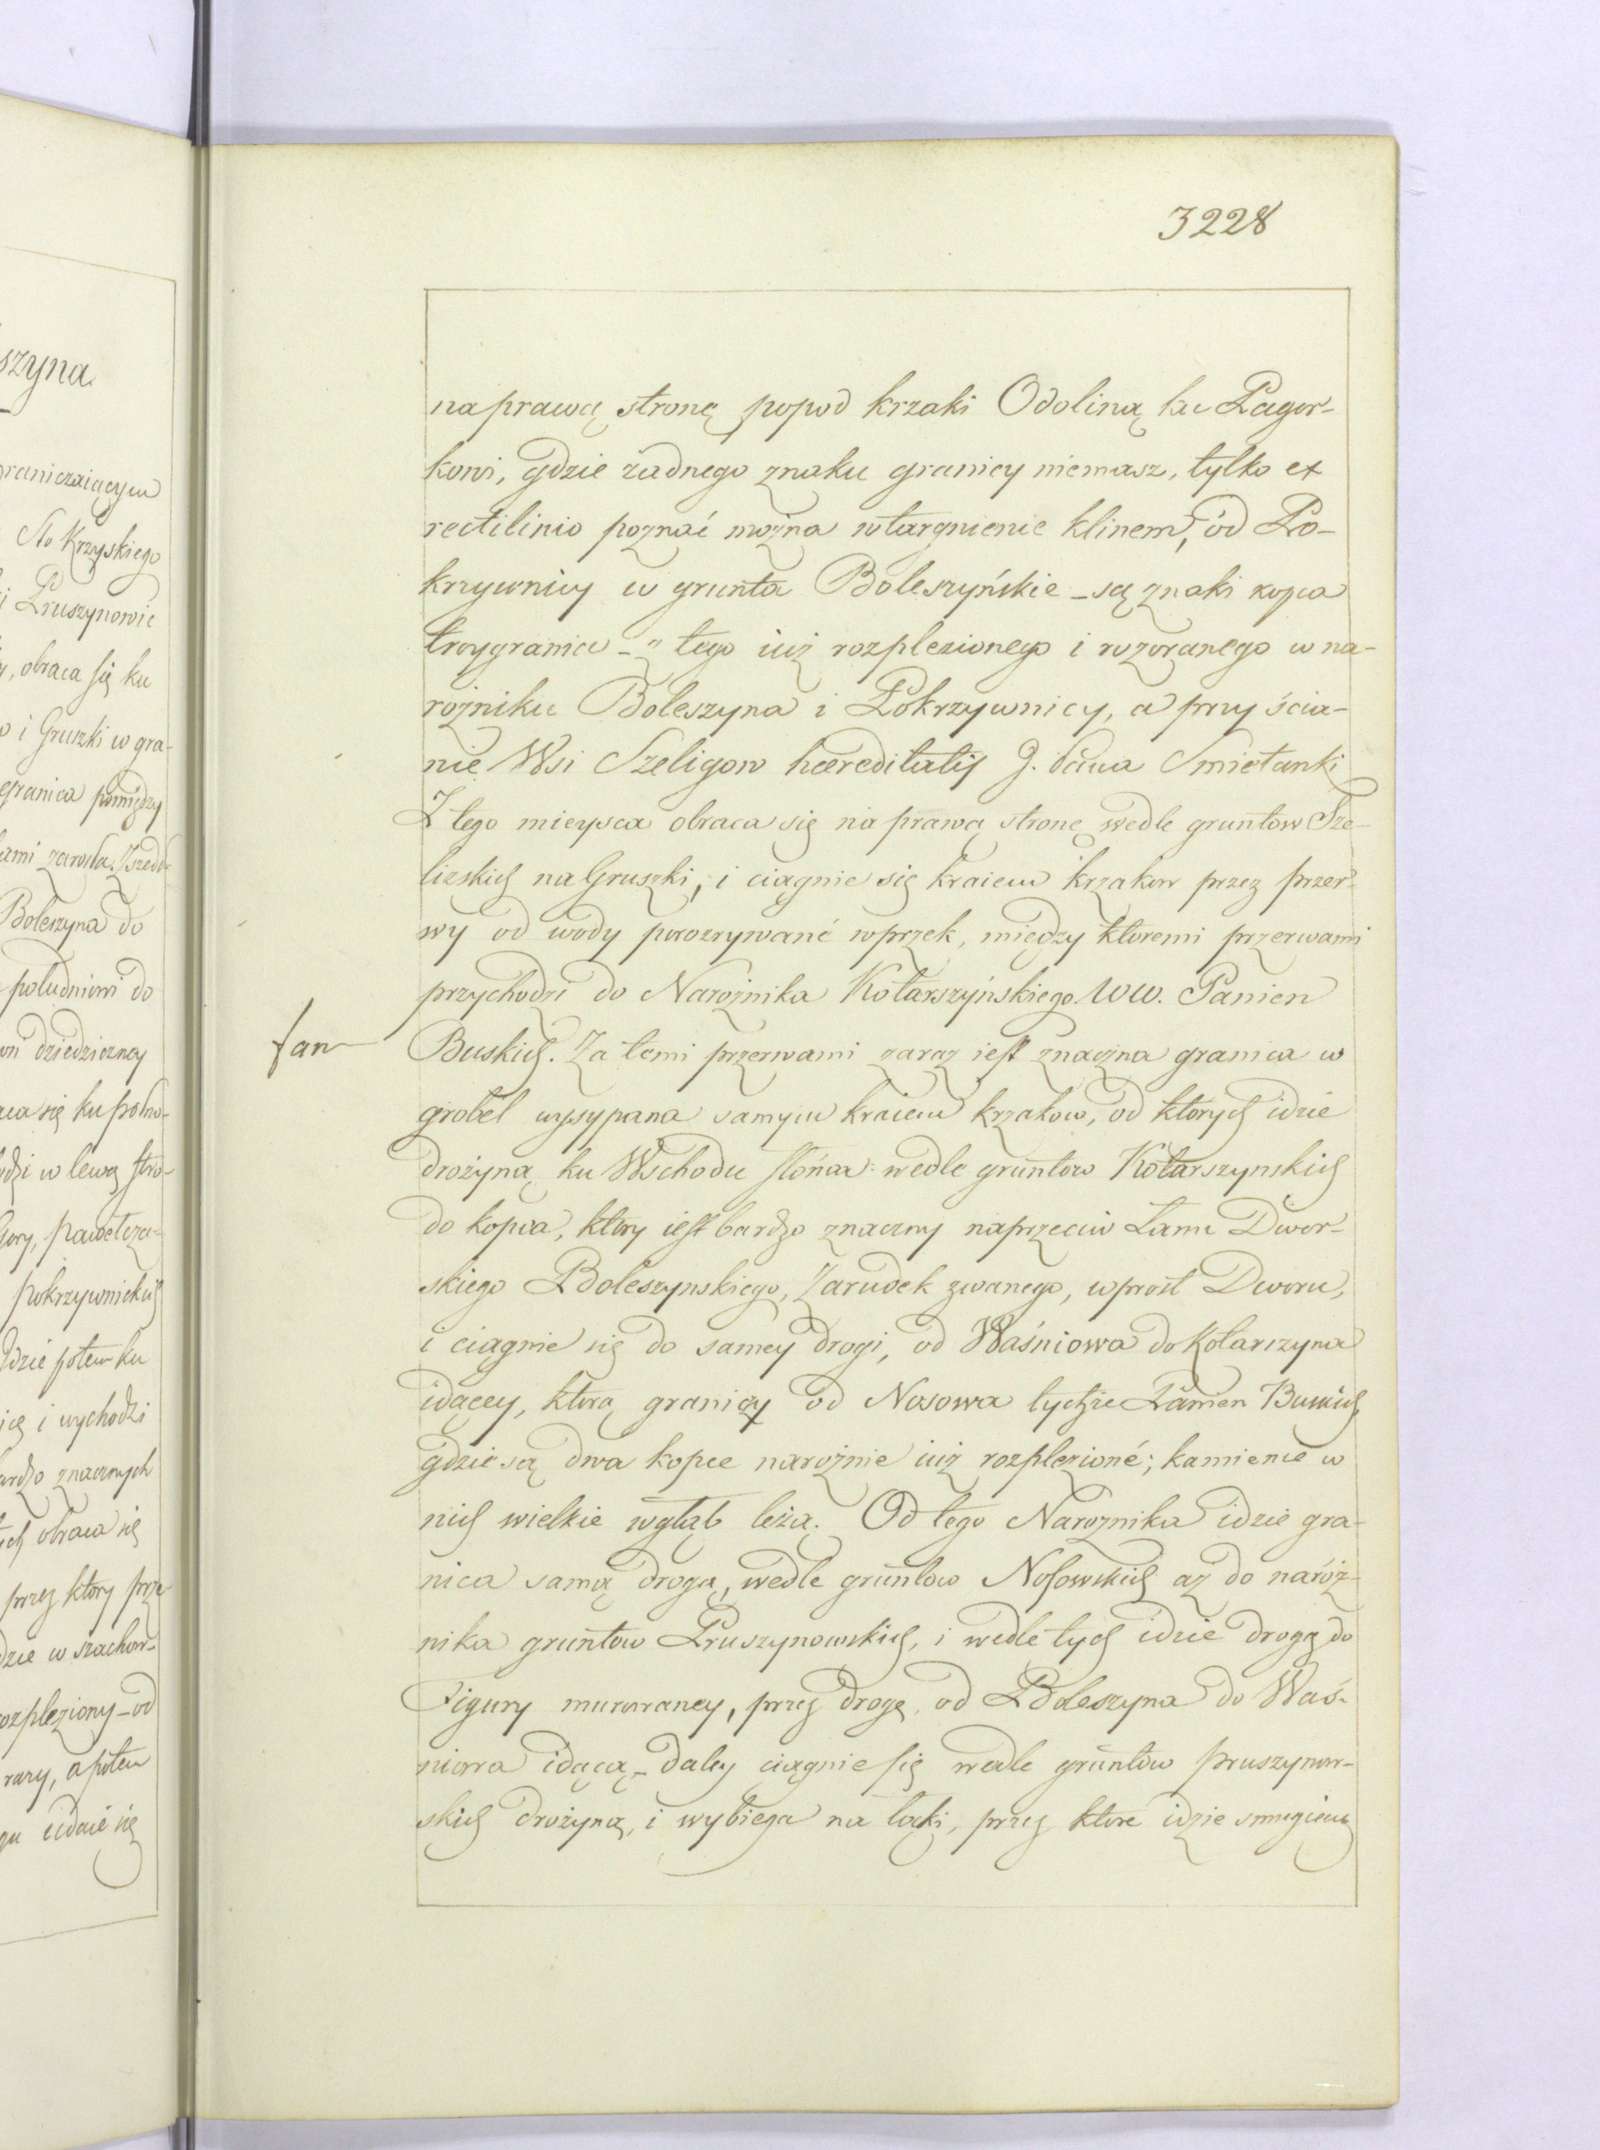 szyna.
raniczaiącym
Sto Krzyskiego
i Pruszynowie
, obraca się ku
o i Gruszki w gra-
granica pomiędzy
ami zarosła. Wszedł-
Boleszyna do
południowi do
wsi dziedziczney
aca się ku połno-
odzi w lewą stro-
Gory, pawełcza-
pokrzywnickich
Idzie potem ku
icę i wychodzi
bardzo znacznych
tych obraca się
przez ktory prze-
dzie w szachow-
rozpleziony – od
razy, a potem
gu udaie się
3228
na prawą stronę popod krzaki Odoliną ku Pagor-
kowi, gdzie żadnego znaku granicy niemasz, tylko ex
rectilinio poznać można wtargnienie klinem, od Po-
krzywnicy w grunta Boleszyńskie – są znaki kopca
troygranicz – " tego iuż rozplezionego i rozoranego w na-
rożniku Boleszyna i Pokrzywnicy, a przy ścia-
nie Wsi Szeligow hæreditatis J. Pana Smietanki
Z tego mieysca obraca się na prawą stronę wedle gruntow Sze-
lizskich na Gruszki, i ciągnie się kraiem krzakow przez przer-
wy od wody porozrywané wprzek, między ktoremi przerwami
przychodzi do Narożnika Kotarszyńskiego WW. Panien
fan
Buskich. Za temi przerwami zaraz iest znaczna granica w
grobel wysypana samym kraiem krzakow, od ktorych idzie
drożyną ku Wschodu słońca wedle gruntow Kotarszynskich
do kopca, ktory iest bardzo znaczny naprzeciw Łanu Dwor-
skiego Boleszynskiego, Zarudek zwanego, wprost Dworu,
i ciągnie się do samey drogi, od Waśniowa do Kotarszyna
idącey, ktorą graniczy od Nosowa tychże Panien Buskich,
gdzie są dwa kopce narożnie iuż rozplezioné; kamienie w
nich wielkie wgłąb leżą. Od tego Narożnika idzie gra-
nica samą drogą, wedle gruntow Nosowskich aż do naróż-
nika gruntow Pruszynowskich, i wedle tych idzie drogą do
Figury murowaney, przez drogę, od Boleszyna do Waś-
niowa idącą – daley ciągnie się wedle gruntow pruszynow-
skich drożyną, i wybiega na łąki, przez ktore idzie smugiem